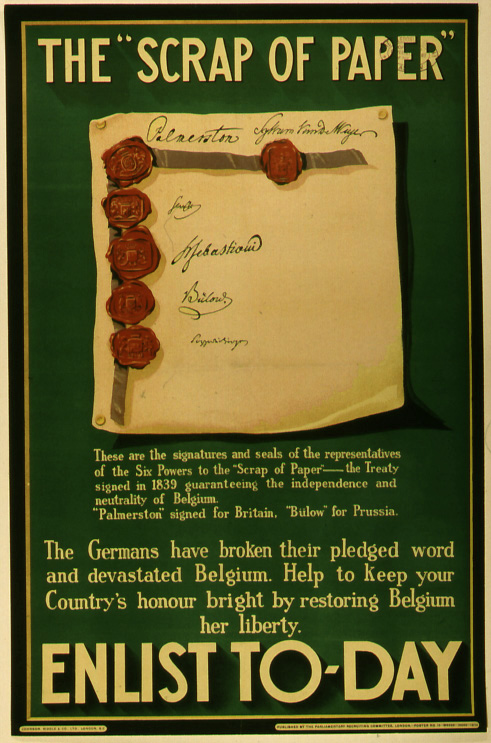 THE "SCRAP OF PAPER"
Palmerston Sylvain Van de Weyer
H Sebastiani
Bülow.
These are the signatures and seals of the representatives
of the Six Powers to the "Scrap of Paper"—the Treaty
signed in 1839 guaranteeing the independence and
neutrality of Belgium.
"Palmerston" signed for Britain, "Bülow" for Prussia.
The Germans have broken their pledged word
and devastated Belgium. Help to keep your
Country's honour bright by restoring Belgium
her liberty.
ENLIST TO-DAY
PUBLISHED BY THE PARLIAMENTARY RECRUITING COMMITTEE, LONDON.